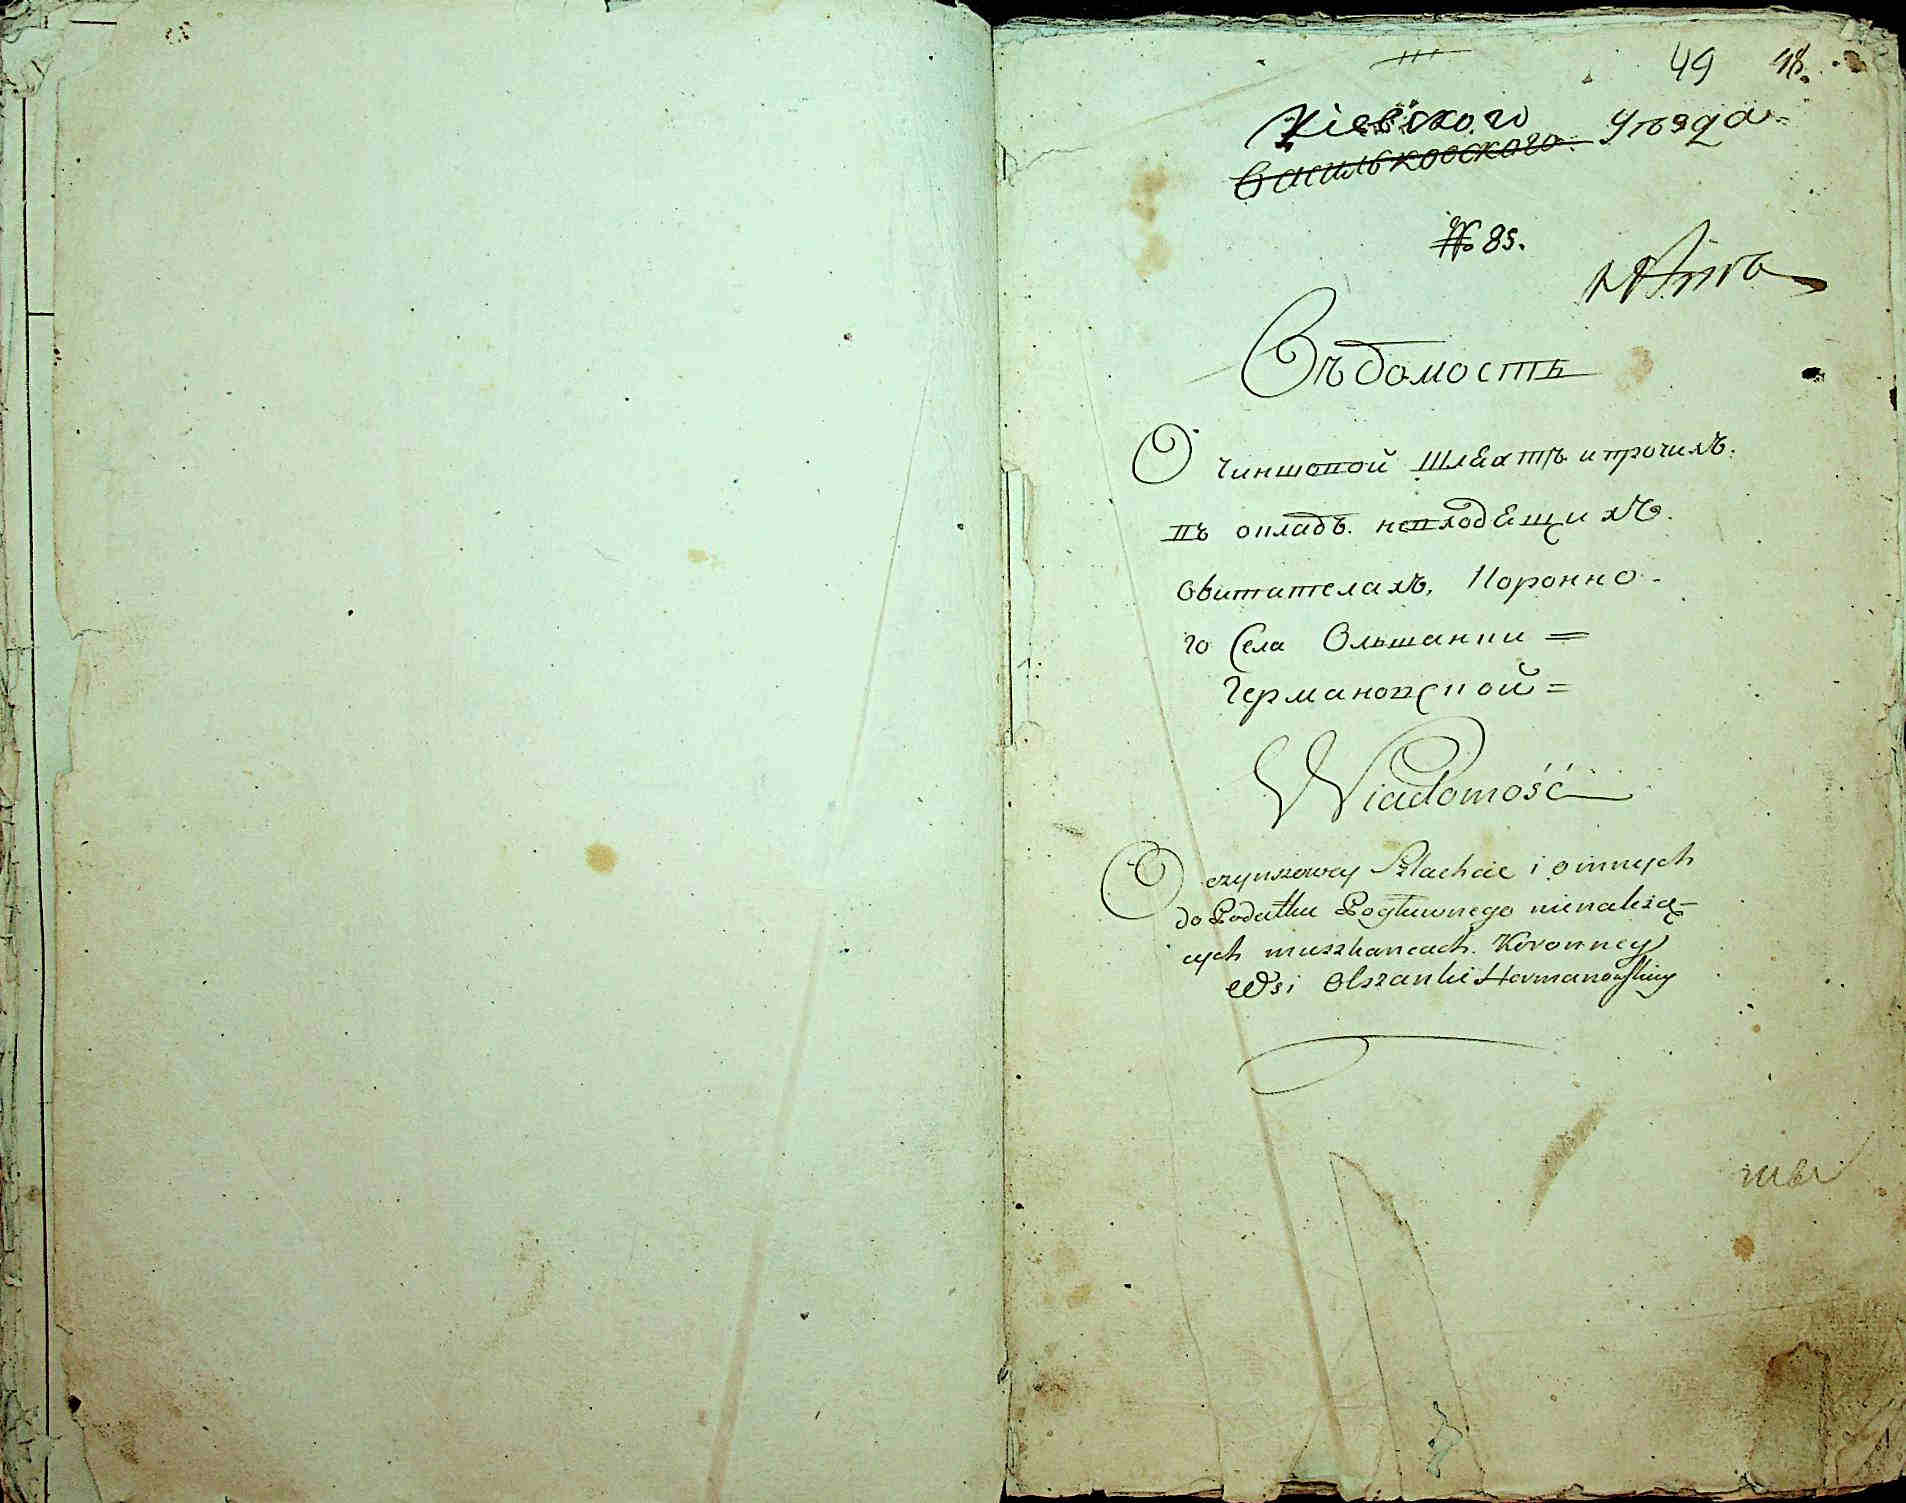 49 48.
Кіевского Уѣзда
Васильковского
№ 85.
Вѣдомость
О чиншовой шляхтѣ и прочихъ
въ окладѣ невходящихъ
обитателяхъ, Коронно-
го Села Ольшанки =
Германовской =
Wiadomość
O czynszowey Szlachcie i o innych
do Podatku Pogłuwnego nienależą-
cych mieszkancach Koronney
Wsi Olszanki Hermanowskiey